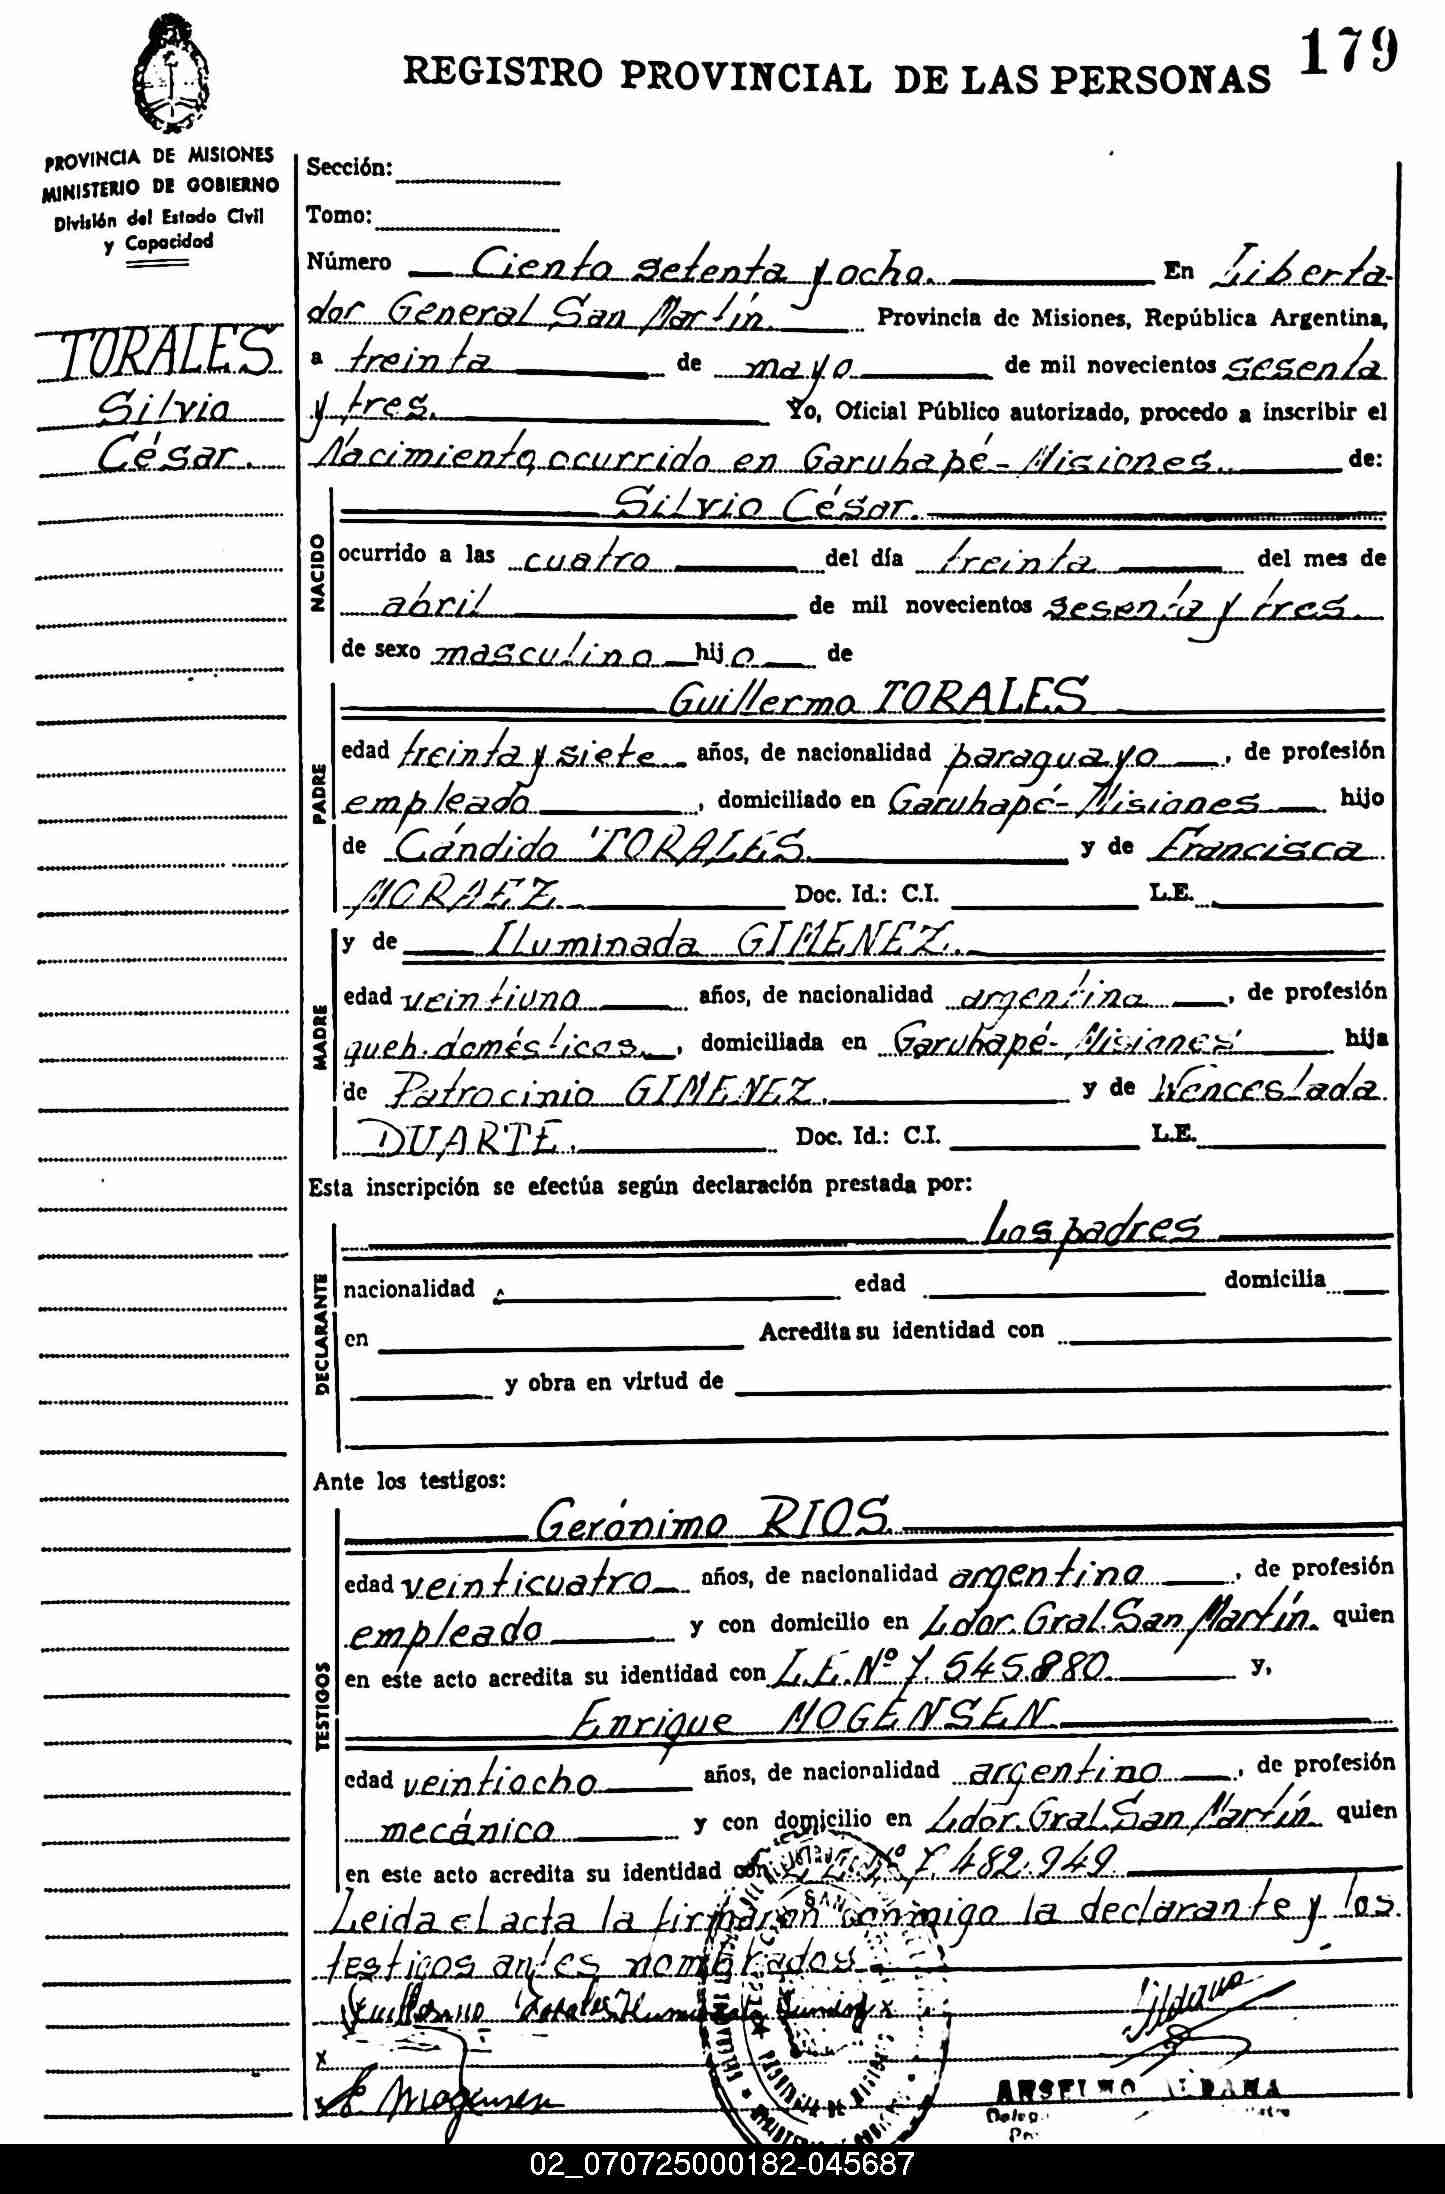 179
REGISTRO PROVINCIAL DE LAS PERSONAS
PROVINCIA DE MISIONES
MINISTERIO DE GOBIERNO
División del Estado Civil
y Capacidad
TORALES
Silvio
César.
Sección:
Tomo:
Número Ciento setenta y ocho. En Liberta-
dor General San Martín Provincia de Misiones, República Argentina,
a treinta de mayo de mil novecientos sesenta
y tres. Yo, Oficial Público autorizado, procedo a inscribir el
Nacimiento ocurrido en Garuhapé - Misiones. de:
NACIDO
Silvio César.
ocurrido a las cuatro del día treinta del mes de
abril de mil novecientos sesenta y tres.
de sexo masculino hijo de
PADRE
Guillermo TORALES
edad treinta y siete años, de nacionalidad paraguayo, de profesión
empleado, domiciliado en Garuhapé - Misiones hijo
de Cándido TORALES y de Francisca
MORAEZ. Doc. Id.: C.I. L.E.
MADRE
y de Iluminada GIMENEZ.
edad veintiuno años, de nacionalidad argentina, de profesión
queh. domésticos, domiciliada en Garuhapé - Misiones hija
de Patrocinio GIMENEZ. y de Wenceslada
DUARTE. Doc. Id.: C.I. L.E.
Esta inscripción se efectúa según declaración prestada por:
DECLARANTE
Los padres
nacionalidad edad domicilia
en Acredita su identidad con
y obra en virtud de
Ante los testigos:
TESTIGOS
Gerónimo RIOS
edad veinticuatro años, de nacionalidad argentino, de profesión
empleado y con domicilio en Ldor. Gral. San Martín. quien
en este acto acredita su identidad con L.E. Nº 7.545.880 y,
Enrique MOGENSEN
edad veintiocho años, de nacionalidad argentino, de profesión
mecánico y con domicilio en Ldor. Gral. San Martín. quien
en este acto acredita su identidad con L.E. Nº 7.482.949
Leida el acta la firmaron conmigo la declarante y los
testigos antes nombrados
Guillermo Torales
E. Mogensen
ANSELMO ALDANA
02_070725000182-045687